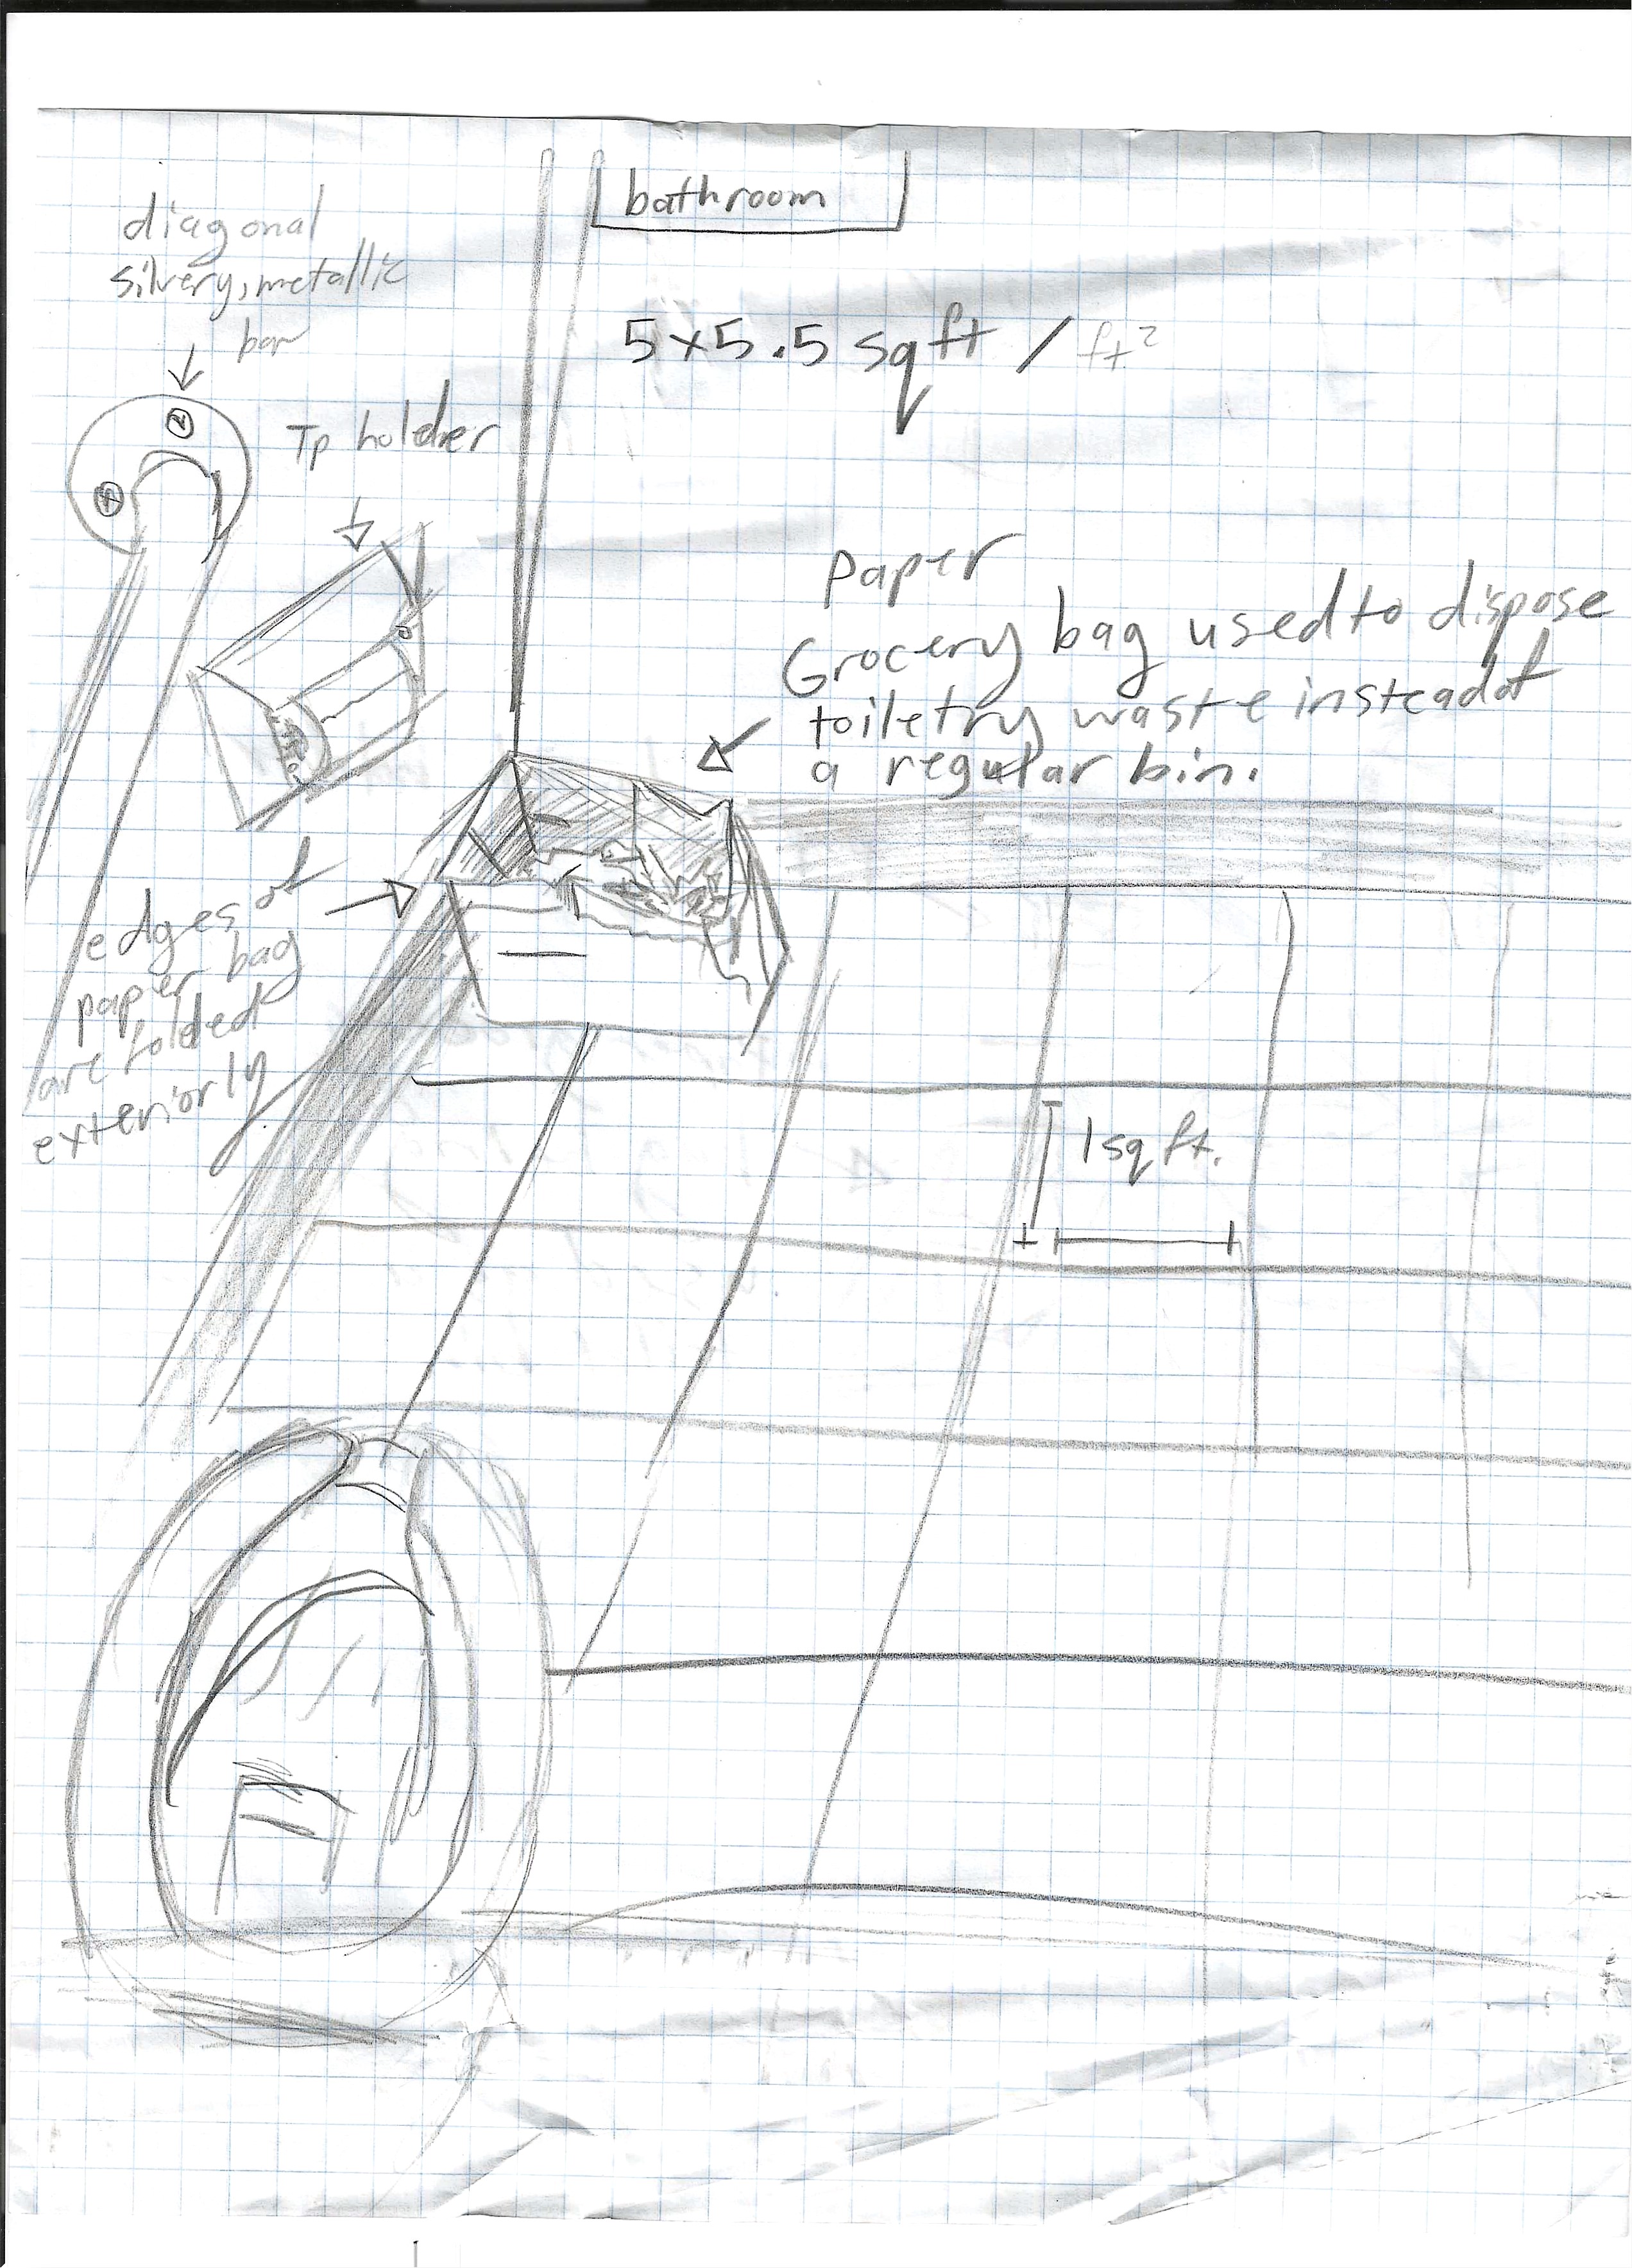 bathroom
diagonal
silvery, metallic
bar
5x5.5 sq ft / ft²
Tp holder
paper
Grocery bag used to dispose
toiletry waste instead of
a regular bin.
edges of
paper bag
are folded
exteriorly
1 sq ft.